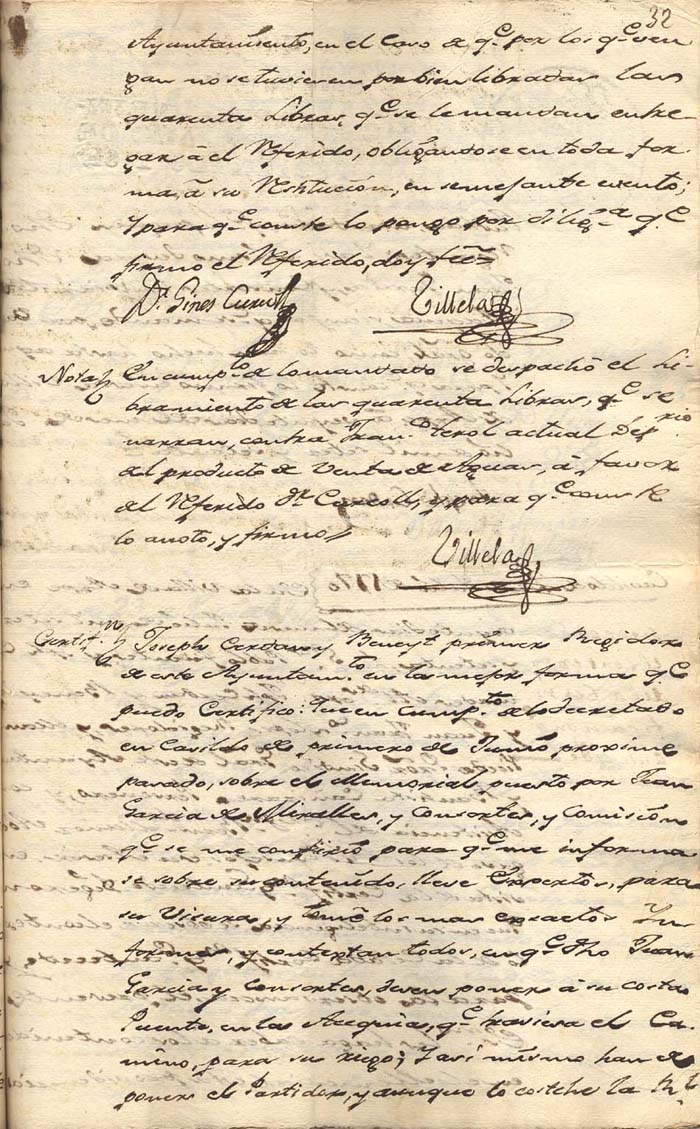 32
Ayuntamiento, en el Caso de q.e por los q.e ven
gan no se tuviesen por bien libradas las
quarenta Libras, q.e se le mandan entre
gar â el Referido, obligandose en toda for
ma, â su Restitución, en semejante evento;
Y para q.e conste lo pongo por dilig.a q.e
firmo el Referido, doy feê
D.r Gines
Villela
Nota En cump.to de lo mandado se despachô el Li-
bramiento de las quarenta Libras, q.e se
narran, contra Fran.co Terol actual Dep.rio
del producto de Venta de Aguas, â favor
del Referido D.r y para q.e conste
lo anoto, y firmo
Villela
Certif.n Joseph Cerdan y Beneyt primer Regidor
de este Ayuntam.to en la mejor forma q.e
puedo Certifico: Que en cump.to de lo decretado
en Cavildo de primero de Junio proximo
pasado, sobre el Memorial puesto por Juan
Garcia de Miralles, y Consortes, y Comisión
q.e se me confirió para q.e me informa
se sobre su contenido, lleve Expertos, para
su Visura, y tomè los mas exactos In
formes, y contestan todos, en q.e dho Juan
Garcia y Consortes, deven poner â su costa
Puente, en las Azequias, q.e traviesa el Ca
mino, para su riego; Y asi mismo han de
poner el Partidor, y aunque lo costehe la